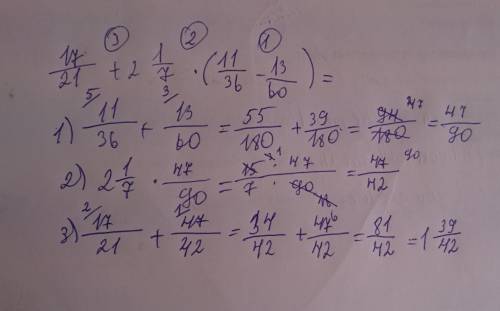 ③ ② ①
17/21 + 2 1/7 · (11/36 - 13/60) =
1) 11/36 + 13/60 = 55/180 + 39/180 = 94/180 = 47/90
2) 2 1/7 · 47/90 = 15 · 47/7 · 90 = 47/42
3) 17/21 + 47/42 = 34/42 + 47/42 = 81/42 = 1 39/42